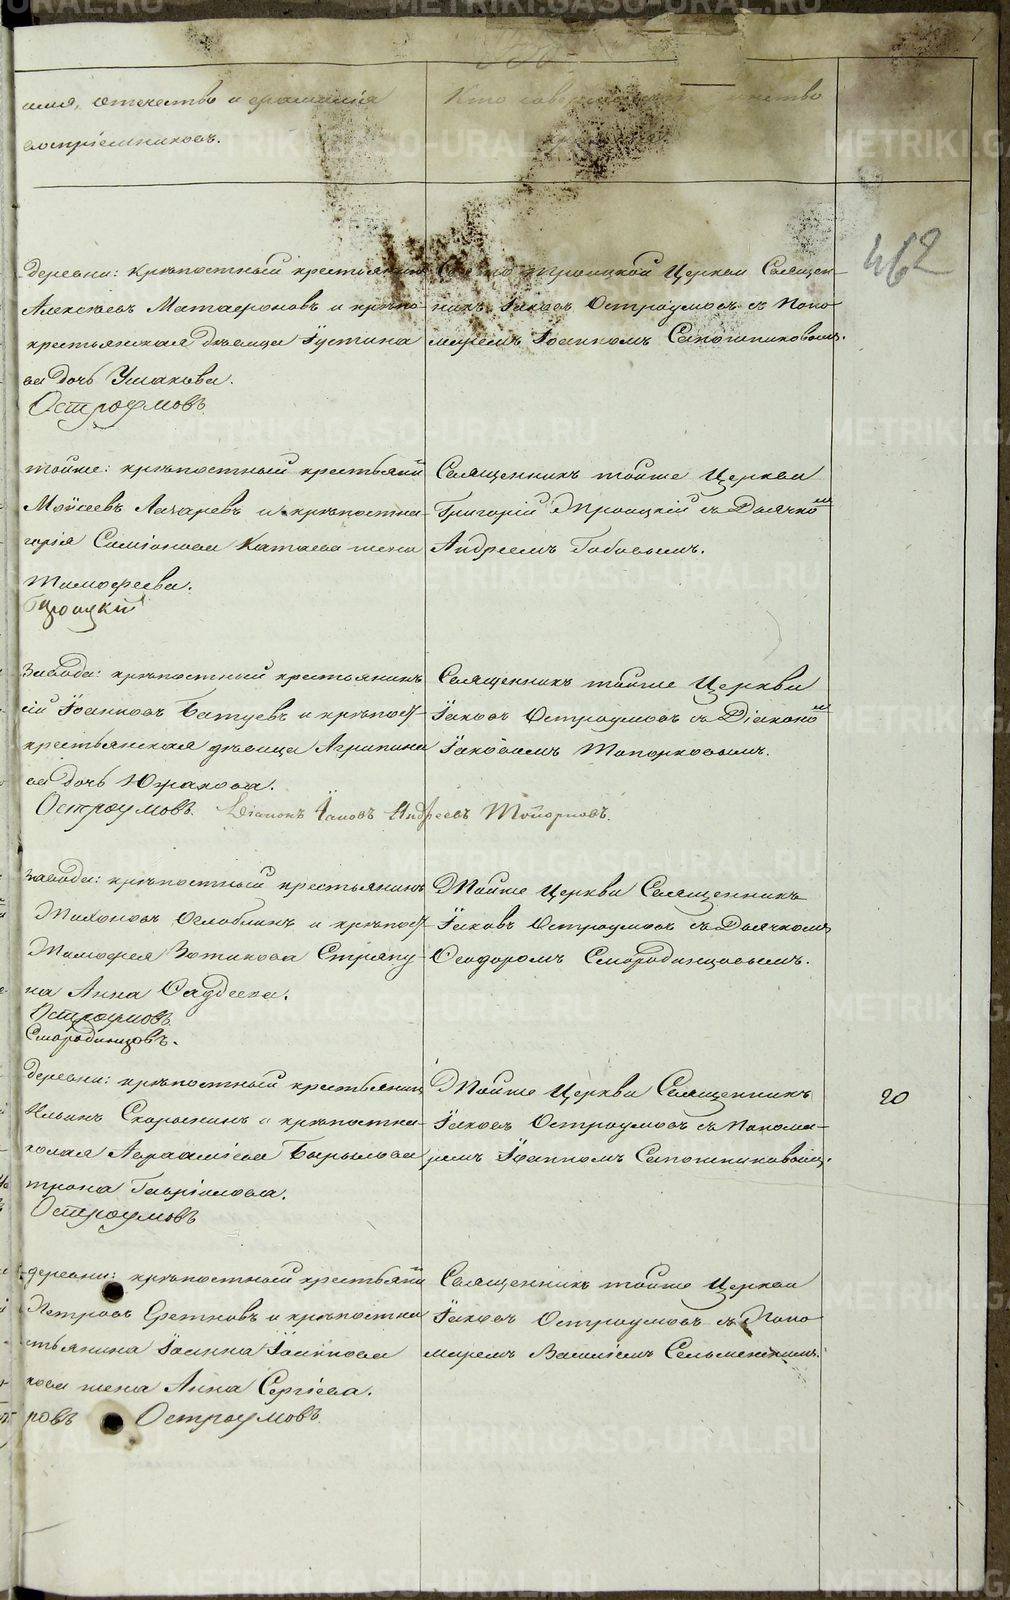 METRIKI.GASO-URAL.RU
имя, отечество и фамилія
воспріемниковъ.
Кто совершалъ
462
деревни: крѣпостный крестьянинъ
Алексѣевъ Матафоновъ и крѣпо-
крестьянская дѣвица Іустина
ва дочь Ушакова.
Остроумовъ
Троицкой Церкви Священ-
никъ Іаковъ Остроумовъ съ Поно-
маремъ Іоанномъ Сапожниковымъ.
тойже: крѣпостный крестьяни
Моисеевъ Лазаревъ и крѣпостна-
горія Симіонова Катаева жена
Тимофеева.
Троицкій
Священникъ тойже Церкви
Григорій Троицкій съ Дьячко
Андреемъ Бобовымъ.
Завода: крѣпостный крестьянинъ
сій Іоанновъ Батуевъ и крѣпост-
крестьянская дѣвица Агрипина
ва дочь Южакова.
Остроумовъ. Діаконъ Іаковъ Андреевъ Топорковъ.
Священникъ тойже Церкви
Іаковъ Остроумовъ съ Діаконо
Іаковымъ Топорковымъ.
Завода: крѣпостный крестьянинъ
Тихоновъ Оглоблинъ и крѣпост-
Тимофея Зотикова Стряпу-
на Анна Фаддеева.
Остроумовъ
Смородинцовъ.
Тойже Церкви Священникъ
Іаковъ Остроумовъ съ Дьячкомъ
Феодоромъ Смородинцовымъ.
деревни: крѣпостный крестьянинъ
Ильинъ Скорынинъ и крѣпостна-
колая Аврааміева Барылова
трона Гавріилова.
Остроумовъ
Тойже Церкви Священникъ
Іаковъ Остроумовъ съ Понома-
ремъ Іоанномъ Сапожниковымъ.
20
деревни: крѣпостный крестьяни
Петровъ Сретновъ и крѣпостна
стьянина Іоанна Іоаннова
кова жена Анна Сергіева.
ровъ Остроумовъ.
Священникъ тойже Церкви
Іаковъ Остроумовъ съ Поно
маремъ Василіемъ Сельменскимъ.